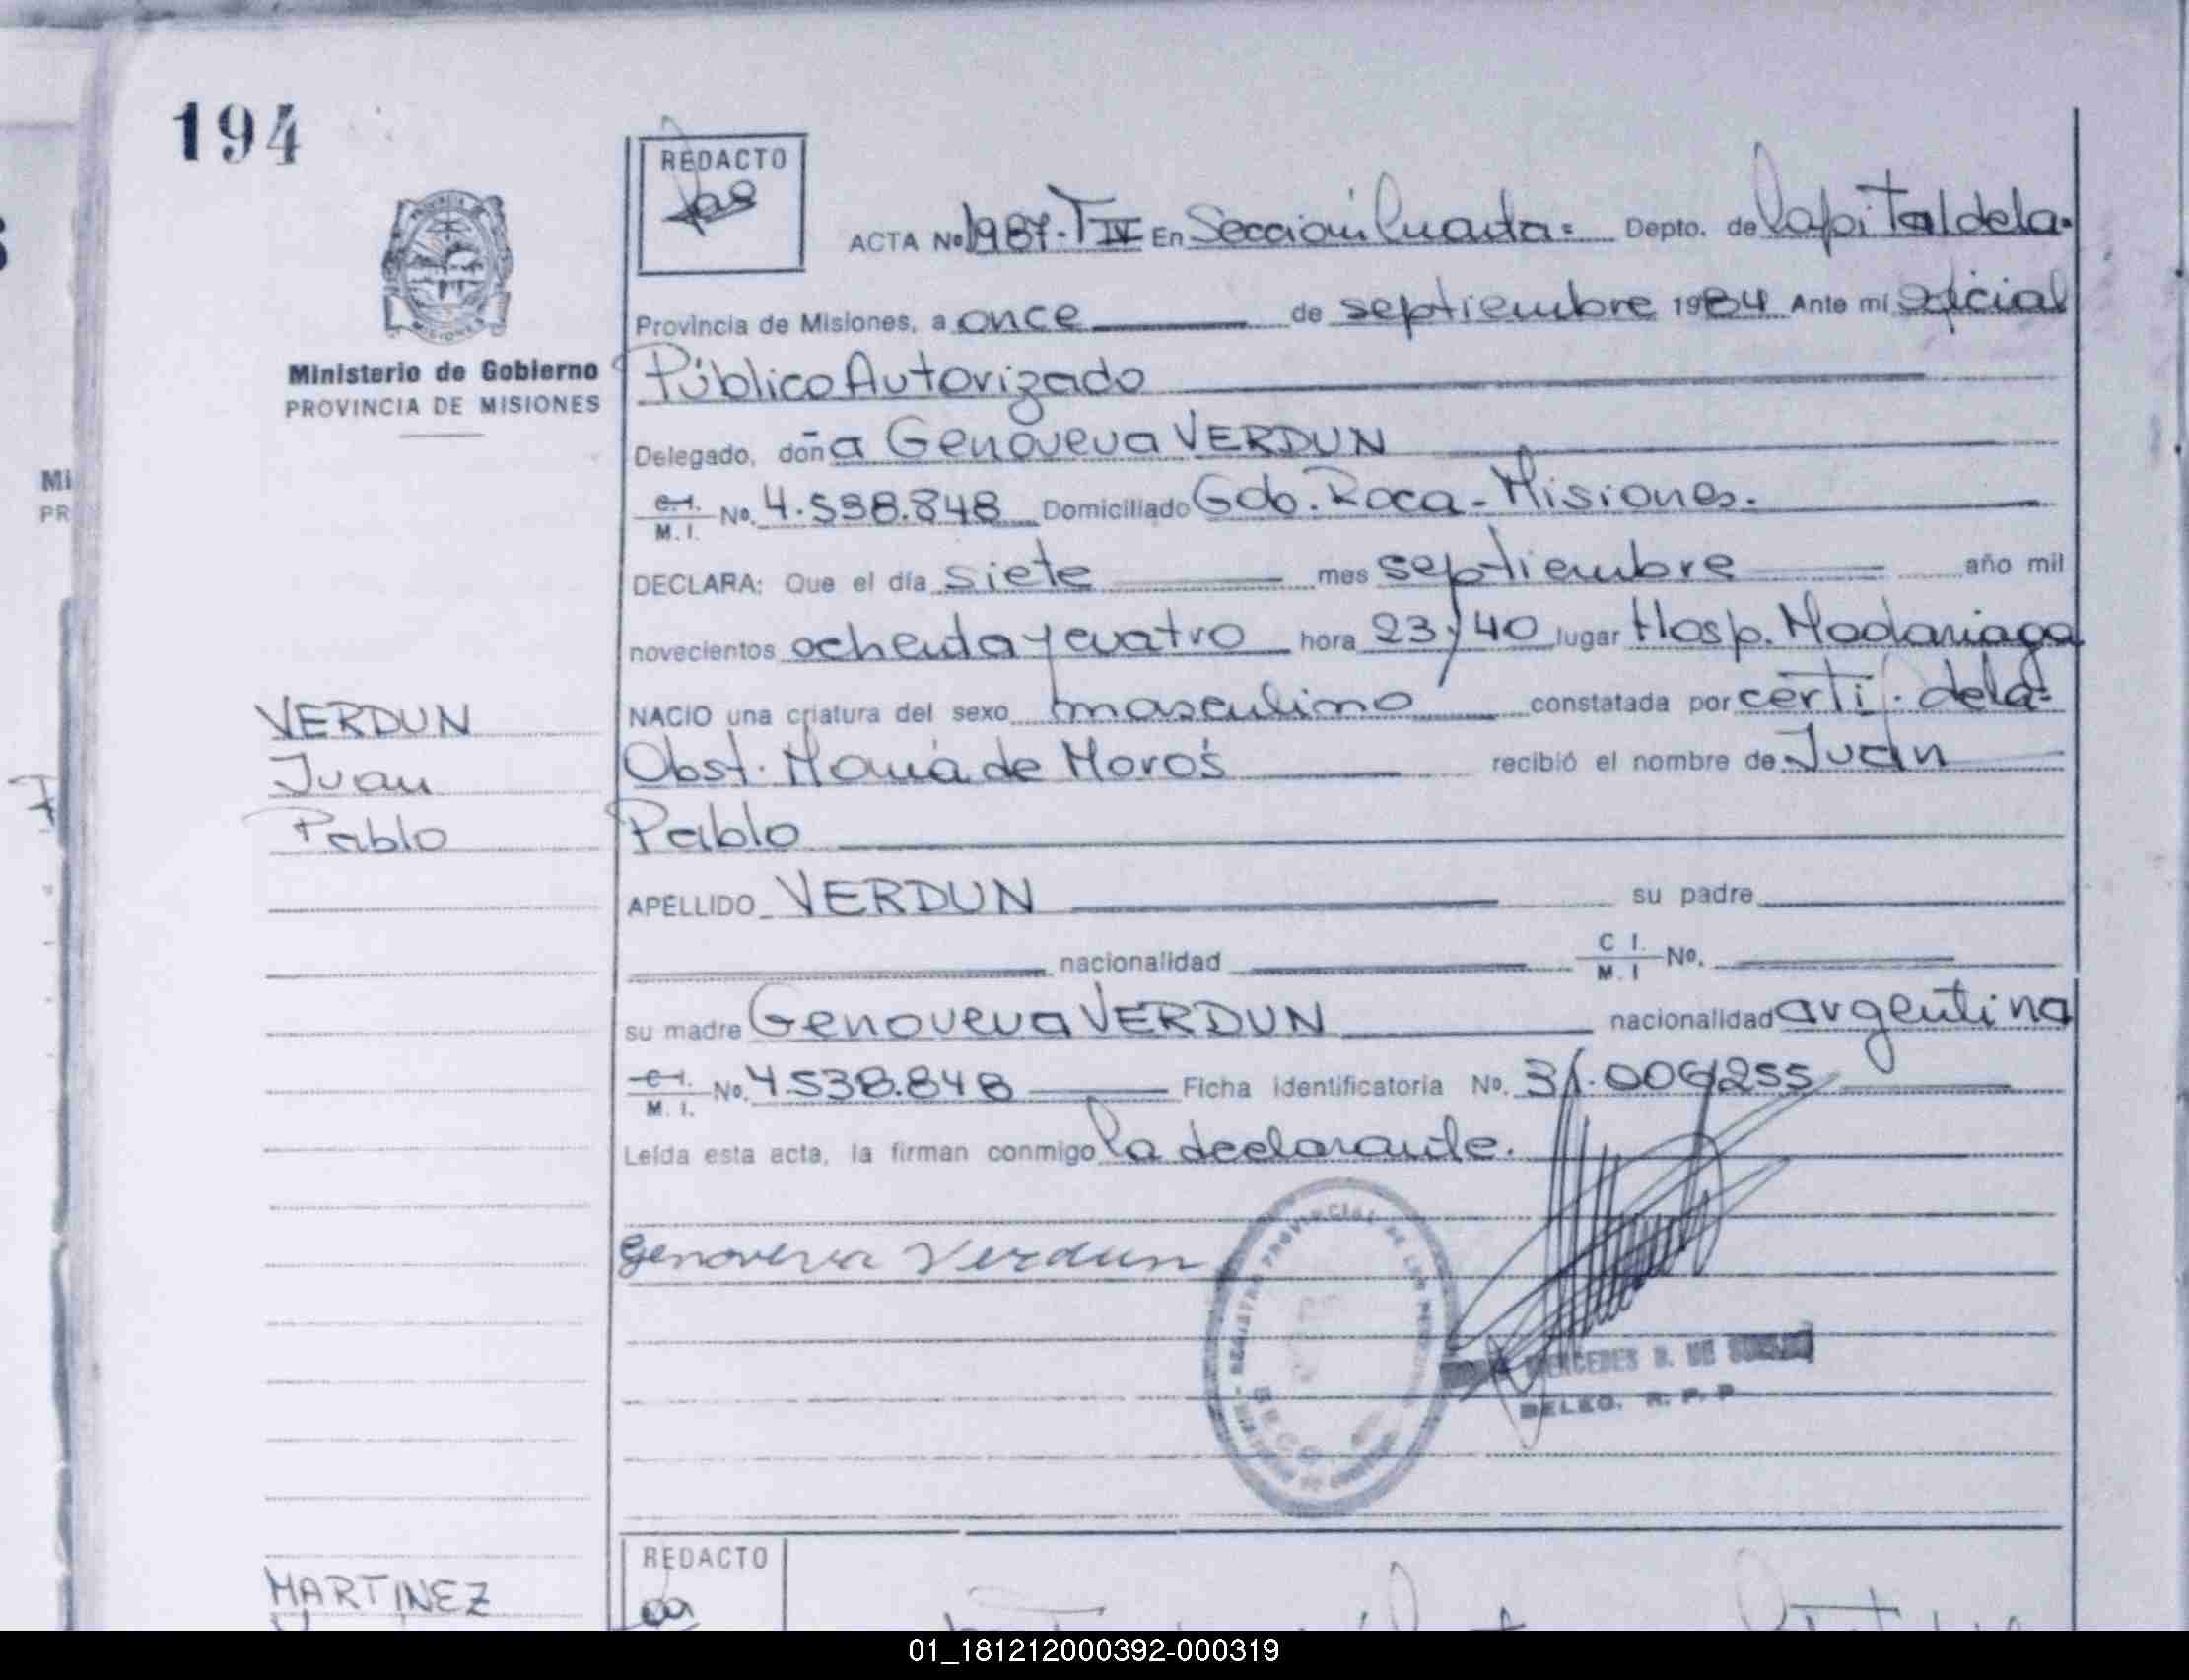 194
REDACTO
ACTA No 1987-T IV En Sección Cuarta= Depto. de Capital de la=
Provincia de Misiones, a once de septiembre 1984 Ante mí Oficial
Ministerio de Gobierno
PROVINCIA DE MISIONES
Público Autorizado
Delegado, doña Genoveva VERDUN
C.I. M.I. No. 4.538.848 Domiciliado Gdo. Roca - Misiones.
DECLARA: Que el día siete mes septiembre año mil
novecientos ochenta y cuatro hora 23,40 lugar Hosp. Madariaga
NACIO una criatura del sexo masculino constatada por certif. de la=
Obst. María de Moros recibió el nombre de Juan
Pablo
VERDUN
Juan
Pablo
APELLIDO VERDUN su padre
nacionalidad C I. M. I No.
su madre Genoveva VERDUN nacionalidad argentina
C.I. M. I. No. 4538.848 Ficha identificatoria No. 31.009255
Leída esta acta, la firman conmigo la declarante.
Genoveva Verdun
REGISTRO PROVINCIAL DE LAS
MERCEDES B. DE
DELEG. R. P. P
MARTINEZ
REDACTO
MI
PR
01_181212000392-000319